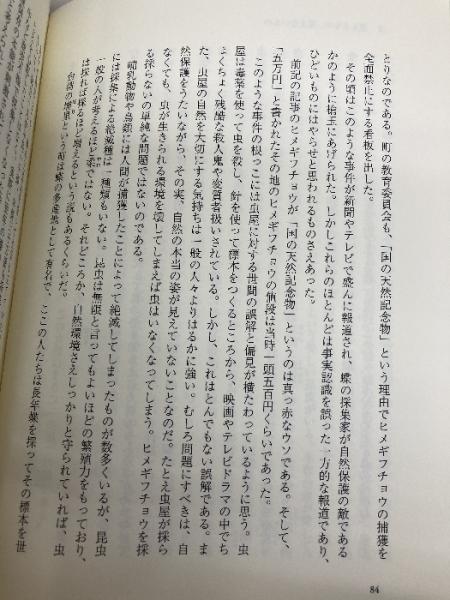 とりなのである。町の教育委員も、「国の天然記念物」という理由でヒメギフチョウの捕獲を
全面禁止にする看板を出した。
その頃はこのような事件が新聞やテレビで盛んに報道され、蝶の採集家が自然保護の敵である
かのように槍玉にあげられた。しかしこれらのほとんどは事実認識を誤った一方的な報道であり、
ひどいものにはやらせと思われるものさえあった。
前記の記事のヒメギフチョウが「国の天然記念物」というのは真っ赤なウソである。そして、
「五万円」と書かれたその地のヒメギフチョウの値段は当時一頭五百円くらいであった。
このような事件の根っこには虫屋に対する世間の誤解と偏見が横たわっているように思う。虫
屋は毒薬を使って虫を殺し、針を使って標本をつくるところから、映画やテレビドラマの中でち
ょくちょく残酷な殺人鬼や変質者扱いされている。しかし、これはとんでもない誤解である。ま
た、虫屋の自然を大切にする気持ちは一般の人々よりはるかに強い。むしろ問題にすべきは、自
然保護をうたいながら、その実、自然の本当の姿が見えていないことなのだ。たとえ虫屋が採ら
なくても、虫が生きられる環境を壊してしまえば虫はいなくなってしまう。ヒメギフチョウを採
る採らないの単純な問題ではないのである。
哺乳動物や鳥類には人間が捕獲したことによって絶滅してしまったものが数多くいるが、昆虫
には採集による絶滅種は一種類もいない。昆虫は無限と言ってもよいほどの繁殖力をもっており、
一般の人が考えるほど柔ではない。それどころか、自然環境さえしっかりと守られていれば、虫
は採れば採るほど増えるという説もあるくらいだ。
台湾の埔里という町は蝶の多産地として有名で、ここの人たちは長年蝶を採ってその標本を世
84